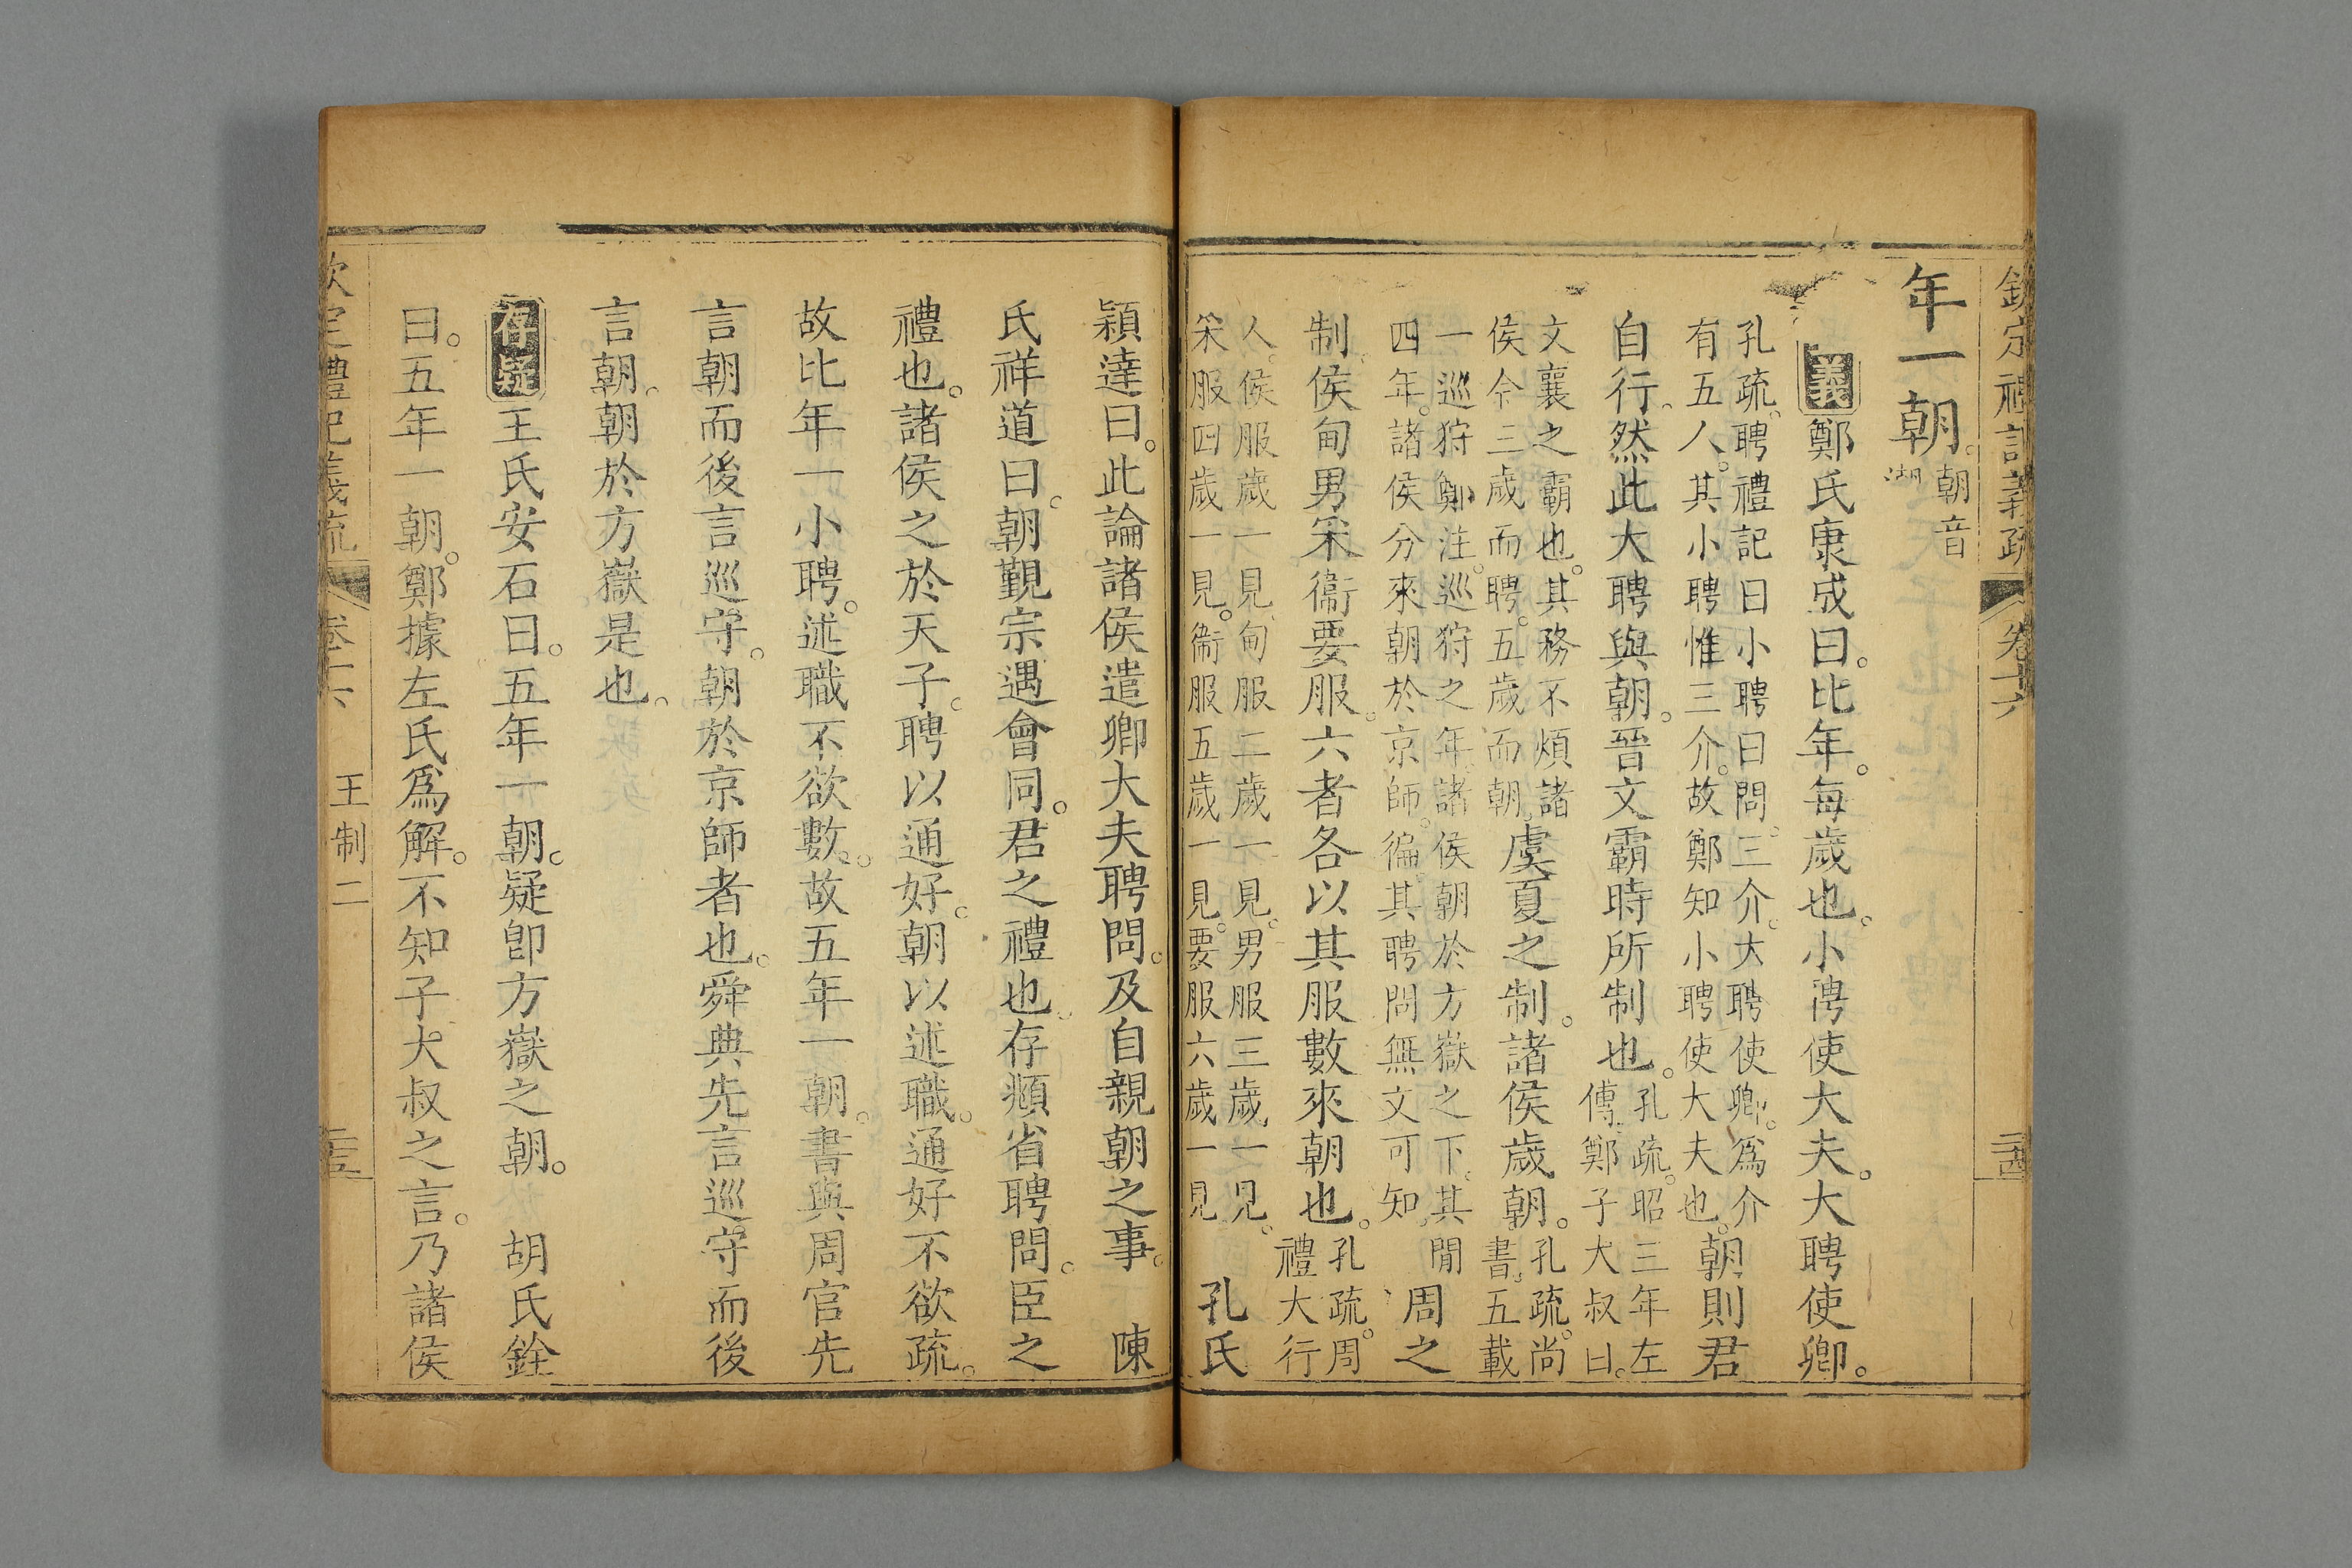 欽定禮記義疏 卷十六 二十四
年一朝。朝音
潮
義 鄭氏康成曰。比年。每歲也。小聘使大夫。大聘使卿。
孔疏。聘禮記曰小聘曰問。三介。大聘使卿。爲介
有五人。其小聘惟三介。故鄭知小聘使大夫也。朝則君
自行。然此大聘與朝。晉文霸時所制也。孔疏。昭三年左
傳。鄭子大叔曰。
文襄之霸也。其務不煩諸
侯令三歲而聘。五歲而朝。虞夏之制。諸侯歲朝。孔疏。尚
書。五載
一巡狩鄭注。巡狩之年。諸侯朝於方嶽之下。其閒
四年。諸侯分來朝於京師。徧。其聘問無文可知。周之
制。侯甸男采衞要服。六者各以其服數來朝也。孔疏。周
禮大行
人。侯服歲一見。甸服二歲一見。男服三歲一見。
采服四歲一見。衞服五歲一見。要服六歲一見 孔氏
穎達曰。此論諸侯遣卿大夫聘問。及自親朝之事。 陳
氏祥道曰。朝覲宗遇會同。君之禮也。存頫省聘問。臣之
禮也。諸侯之於天子。聘以通好。朝以述職。通好不欲疏。
故比年一小聘。述職不欲數。故五年一朝。書與周官先
言朝而後言巡守。朝於京師者也。舜典先言巡守而後
言朝。朝於方嶽是也。
存疑 王氏安石曰。五年一朝。疑卽方嶽之朝。 胡氏銓
曰。五年一朝。鄭據左氏爲解。不知子大叔之言。乃諸侯
欽定禮記義疏 卷十六 王制二 二十五